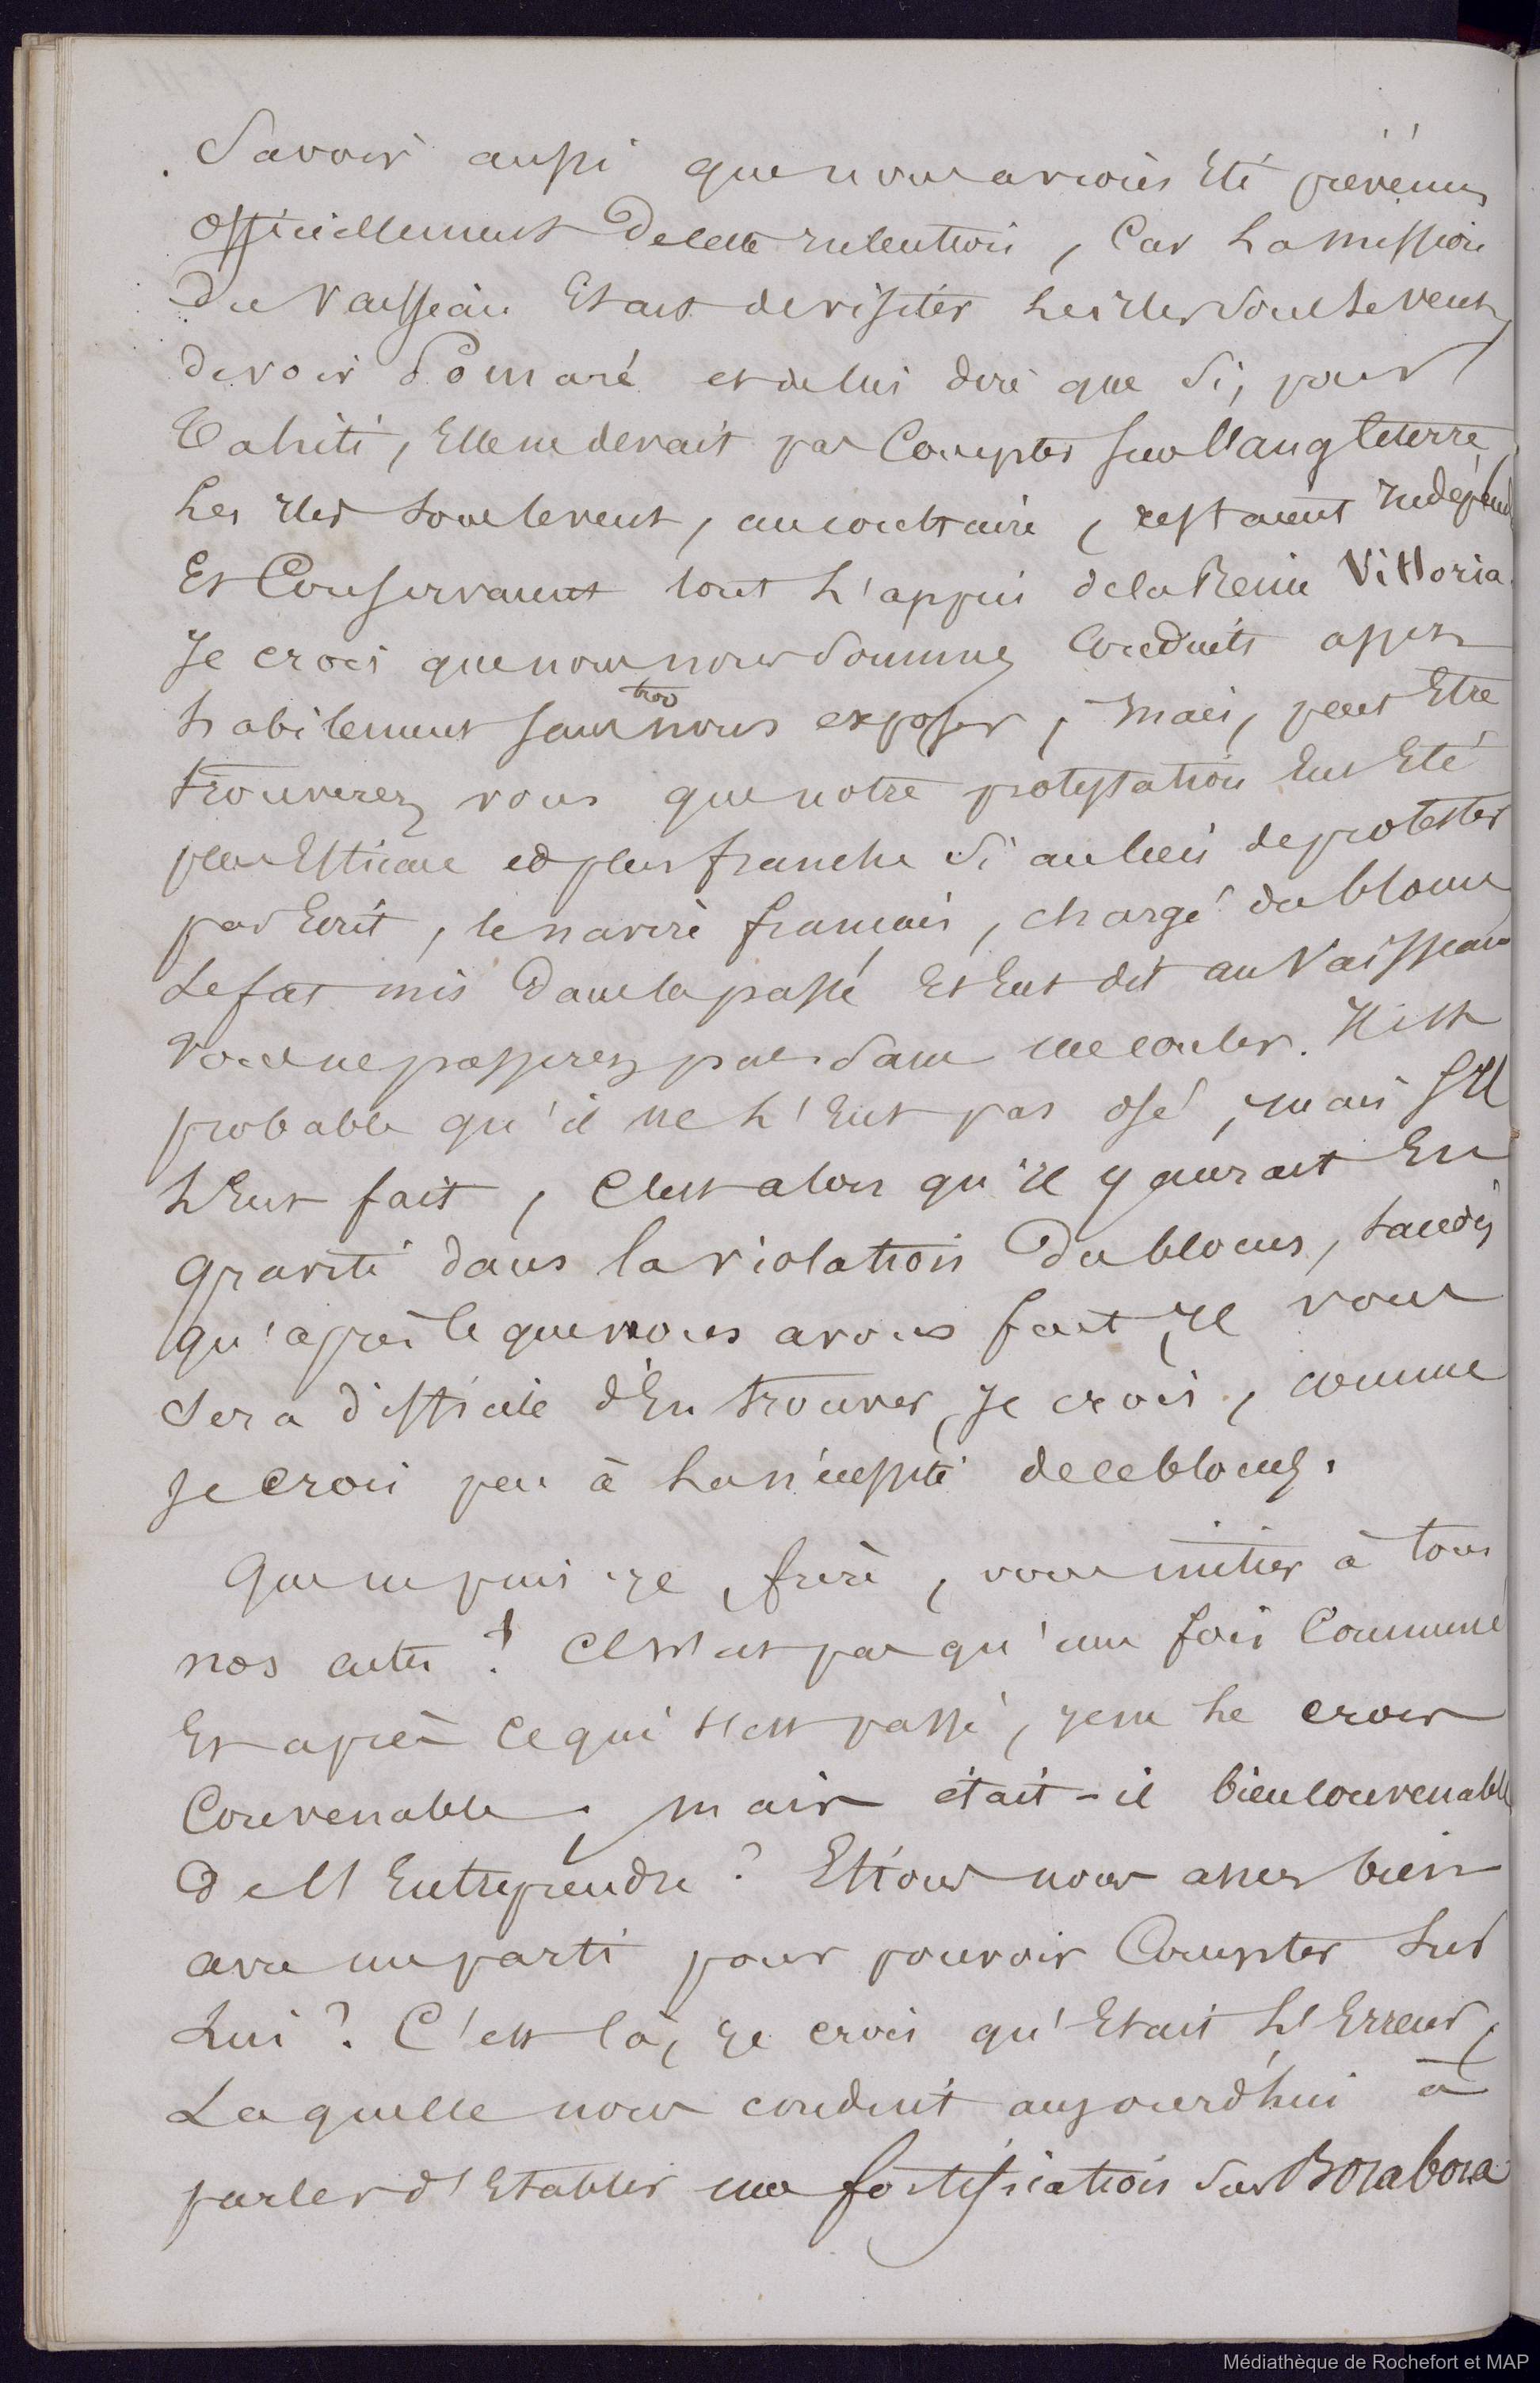 Savoir aussi que nous avions été prévenus
officiellement de cette intention, Car La mission
du Vaisseau Etait de visiter Les iles Sous Le Vent,
de voir Pomaré et de lui dire que Si, pour
Tahiti, Elle ne devait pas Compter sur l'angleterre,
Les iles Sous le vent, au contraire, restaient Indépend
Et Conservaient tout L'appui de la Reine Vittoria.
Je crois que nous nous Sommes Conduits assez
habilement sans trop nous exposer, mais, peut Etre
trouverez vous que notre protestation Eut Eté
plus Efficace et plus franche Si au lieu de protester
par Ecrit, le navire français, chargé du blocus
Se fut mis dans la passe Et Eut dit au Vaisseau
Vous ne passerez pas Sans me couler. Il est
probable qu'il ne L'Eut pas osé, mais S'Il
L'Eut fait, C'est alors qu'il y aurait Eu
gravité dans la violation du blocus, tandis
qu'après Ce que nous avons fait, Il vous
Sera difficile d'En trouver, Je crois, comme
Je crois peu à La nécessité de ce blocus.
Que ne puis-je, frère, vous initier à tous
nos actes ? Ce n'est pas qu'une fois Commencé
Et après Ce qui s'est passé, je ne Le crois
Convenable, mais était-il bien Convenable
De L'Entreprendre ? Etions nous assez bien
avec un parti pour pouvoir Compter Sur
Lui ? C'est là, je crois qu'Etait L'Erreur,
Laquelle nous conduit aujourd'hui à
parler d'Etablir une fortification Sur Borabora
Médiathèque de Rochefort et MAP